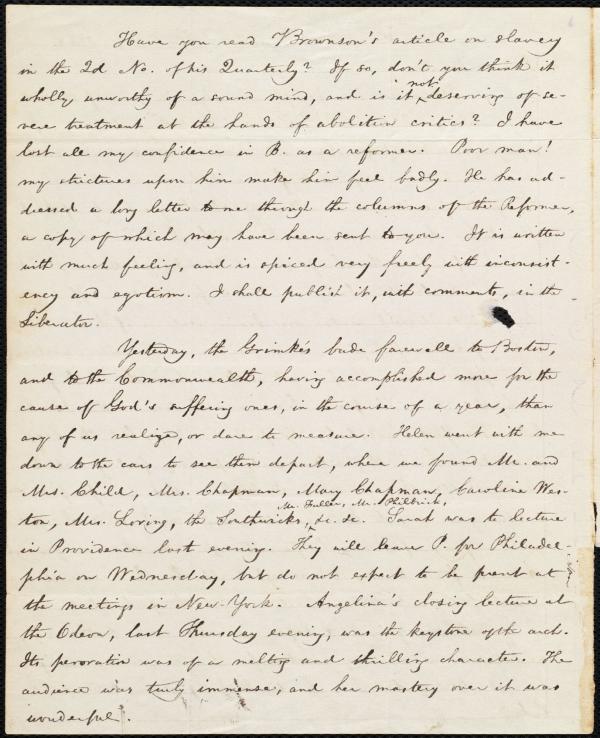 Have you read Brownson's article on slavery
in the 2d No. of his Quarterly? If so, don't you think it
wholly unworthy of a sound mind, and is it not deserving of se-
vere treatment at the hands of abolition critics? I have
lost all my confidence in B. as a reformer. Poor man!
my strictures upon him make him feel badly. He has ad-
dressed a long letter to me through the columns of the Reformer,
a copy of which may have been sent to you. It is written
with much feeling, and is spiced very freely with inconsist-
ency and egotism. I shall publish it, with comments, in the
Liberator.
Yesterday, the Grimkés bade farewell to Boston,
and to the Commonwealth, having accomplished more for the
cause of God's suffering ones, in the course of a year, than
any of us realize, or dare to measure. Helen went with me
down to the cars to see them depart, where we found Mr. and
Mrs. Child, Mrs. Chapman, Mary Chapman, Caroline Wes-
Mr. Fuller, Mr. Philbrick,
ton, Mrs. Loring, the Southwicks, &c. &c. Sarah was to lecture
in Providence last evening. They will leave P. for Philadel-
phia on Wednesday, but do not expect to be present at
the meetings in New-York. Angelina's closing lecture at
the Odeon, last Thursday evening, was the keystone of the arch.
Its peroration was of a melting and thrilling character. The
audience was truly immense, and her mastery over it was
wonderful.